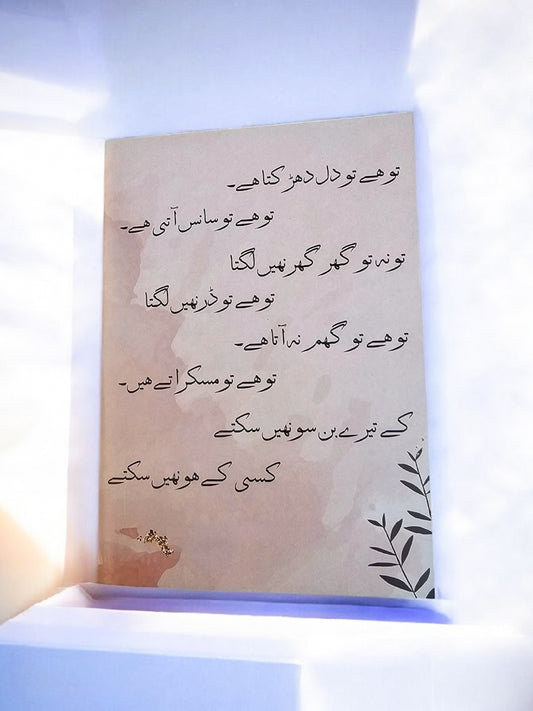 تو ھے تو دل دھڑکتا ھے۔
تو ھے تو سانس آتی ھے۔
تو نہ تو گھر گھر نھیں لگتا
تو ھے تو ڈر نھیں لگتا
تو ھے تو گھم نہ آتا ھے۔
تو ھے تو مسکراتے ھیں۔
کے تیرے بن سو نھیں سکتے
کسی کے ھو نھیں سکتے